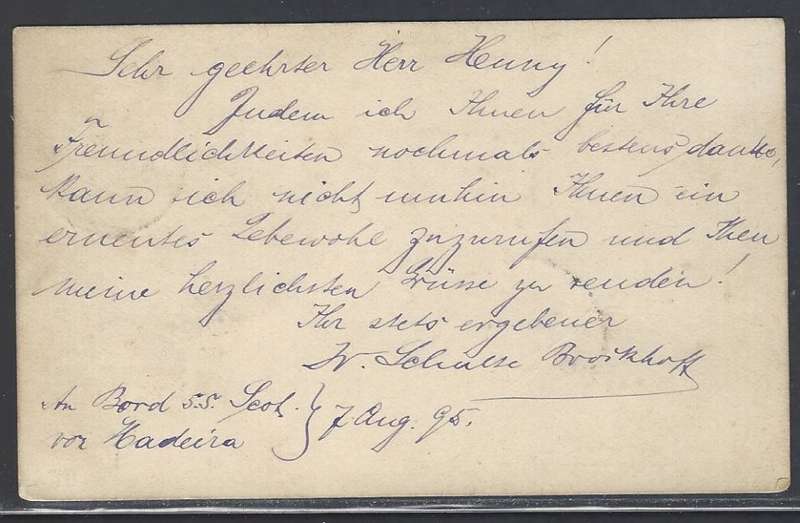 Sehr geehrter Herr Henny!
Indem ich Ihnen für Ihre
Freundlichkeiten nochmals bestens danke,
kann ich nicht umhin Ihnen ein
erneutes Lebewohl zuzurufen und Ihnen
meine herzlichsten Grüsse zu senden!
Ihr stets ergebener
Dr. Schulte Brockhoff
An Bord S.S. Scot.
vor Madeira } 7 Aug. 95.